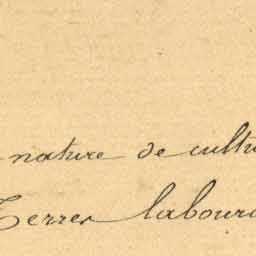 nature de cultu
Terres labour